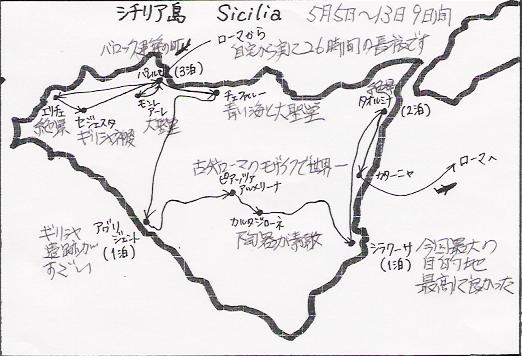 シチリア島 Sicilia 5月5日～13日9日間
ローマから
自宅から実に26時間の長旅です
バロック建築の町
パレルモ
(3泊)
エリチェ
絶景
セジェスタ
ギリシャ神殿
モンレアーレ
大聖堂
チェファルー
青い海と大聖堂
絶景
タオルミナ
(2泊)
古代ローマのモザイクで世界一
ピアッツァ
アルメリーナ
カターニャ
ローマへ
カルタジローネ
陶器が素敵
アグリ
ジェント
(1泊)
ギリシャ
遺跡が
すごい
シラクーサ
(1泊)
今回最大の
目的地
最高に良かった